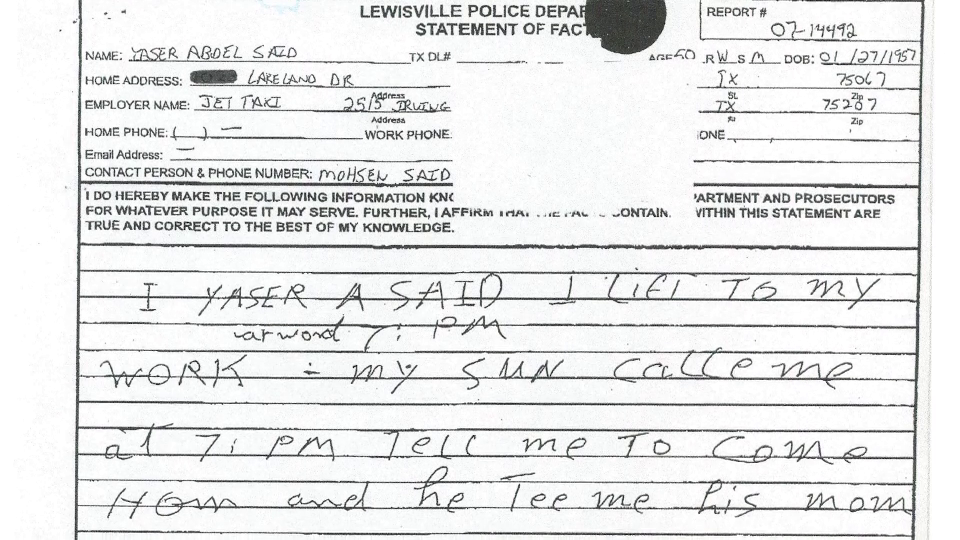 LEWISVILLE POLICE DEPAR
STATEMENT OF FACT
REPORT #
07-14492
NAME: YASER ABDEL SAID TX DL# AGE 50 R W S M DOB: 01/27/1957
HOME ADDRESS: LAKELAND DR TX 75067
Address St. Zip
EMPLOYER NAME: JET TAXI 2515 IRVING TX 75207
Address St. Zip
HOME PHONE: ( ) — WORK PHONE ONE
Email Address: —
CONTACT PERSON & PHONE NUMBER: MOHSEN SAID
I DO HEREBY MAKE THE FOLLOWING INFORMATION KNO PARTMENT AND PROSECUTORS
FOR WHATEVER PURPOSE IT MAY SERVE. FURTHER, I AFFIRM THAT THE FACTS CONTAIN WITHIN THIS STATEMENT ARE
TRUE AND CORRECT TO THE BEST OF MY KNOWLEDGE.
I YASER A SAID I LIFT TO MY
arwond : PM
WORK - my SUN calle me
at 7: PM Tell me To Come
Hom and he Tee me his mom